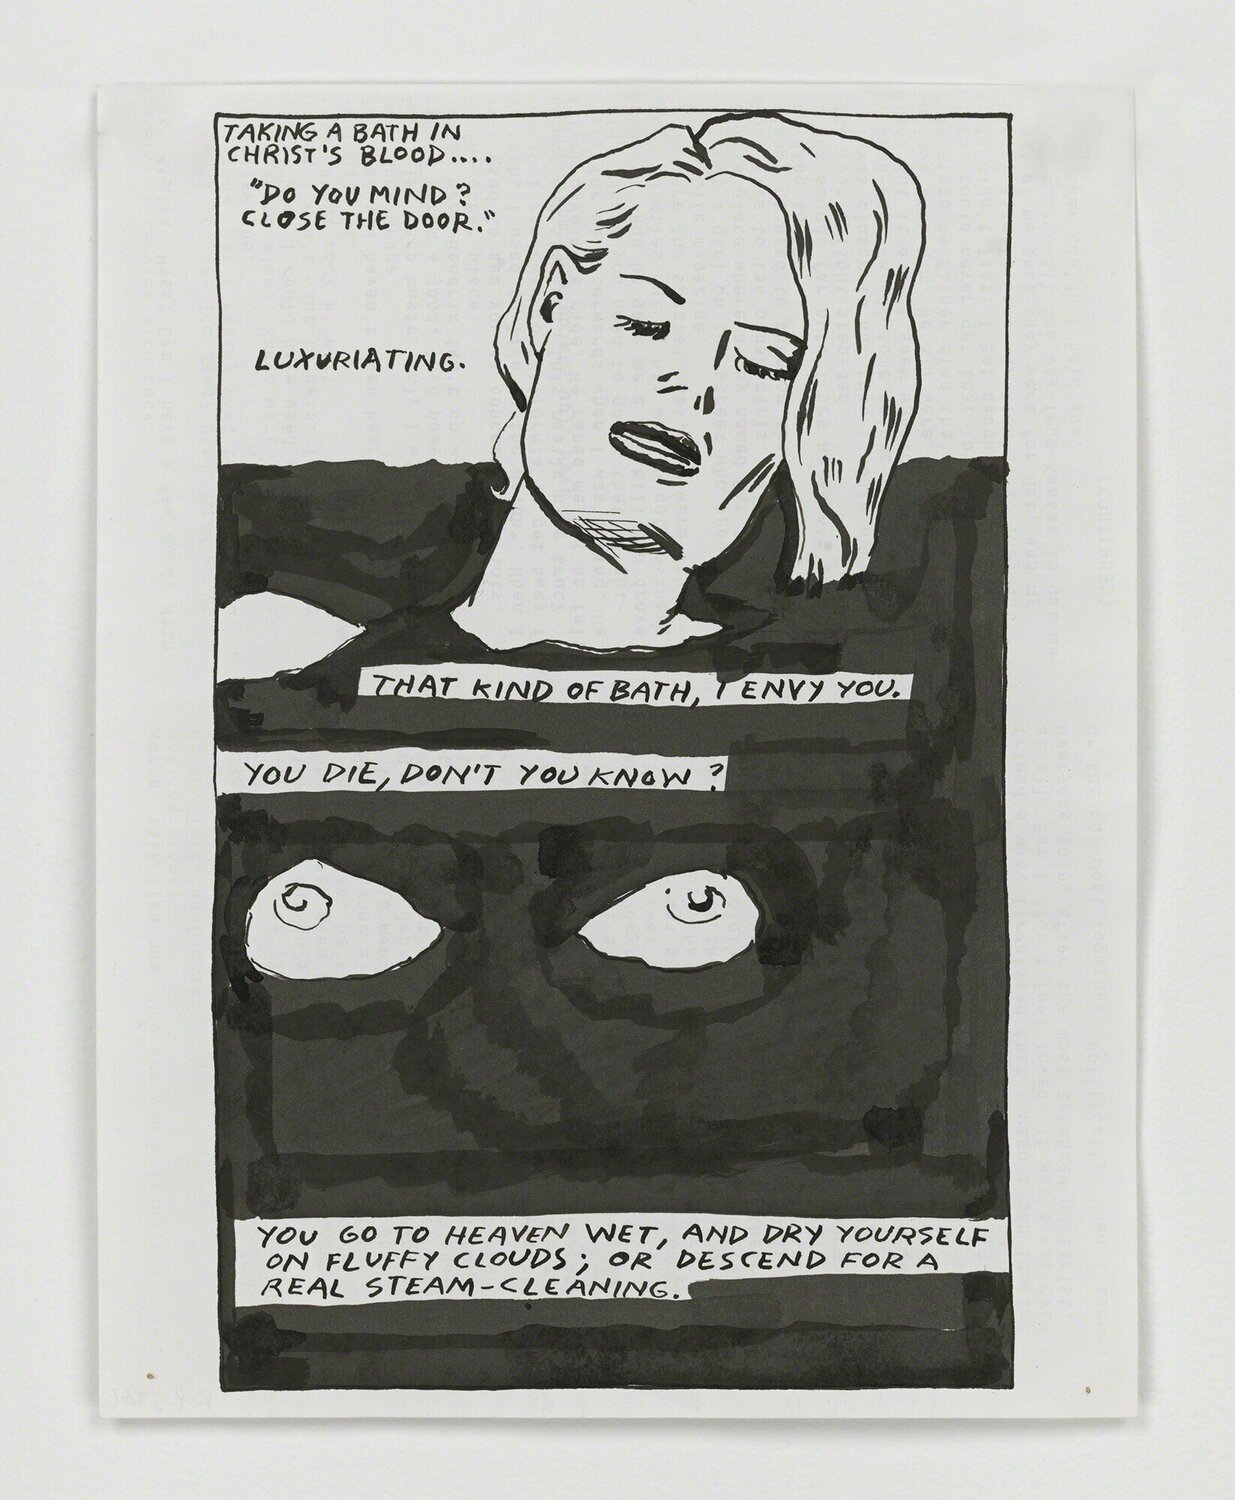 TAKING A BATH IN
CHRIST'S BLOOD....
"DO YOU MIND?
CLOSE THE DOOR."
LUXURIATING.
THAT KIND OF BATH, I ENVY YOU.
YOU DIE, DON'T YOU KNOW?
YOU GO TO HEAVEN WET, AND DRY YOURSELF
ON FLUFFY CLOUDS; OR DESCEND FOR A
REAL STEAM-CLEANING.